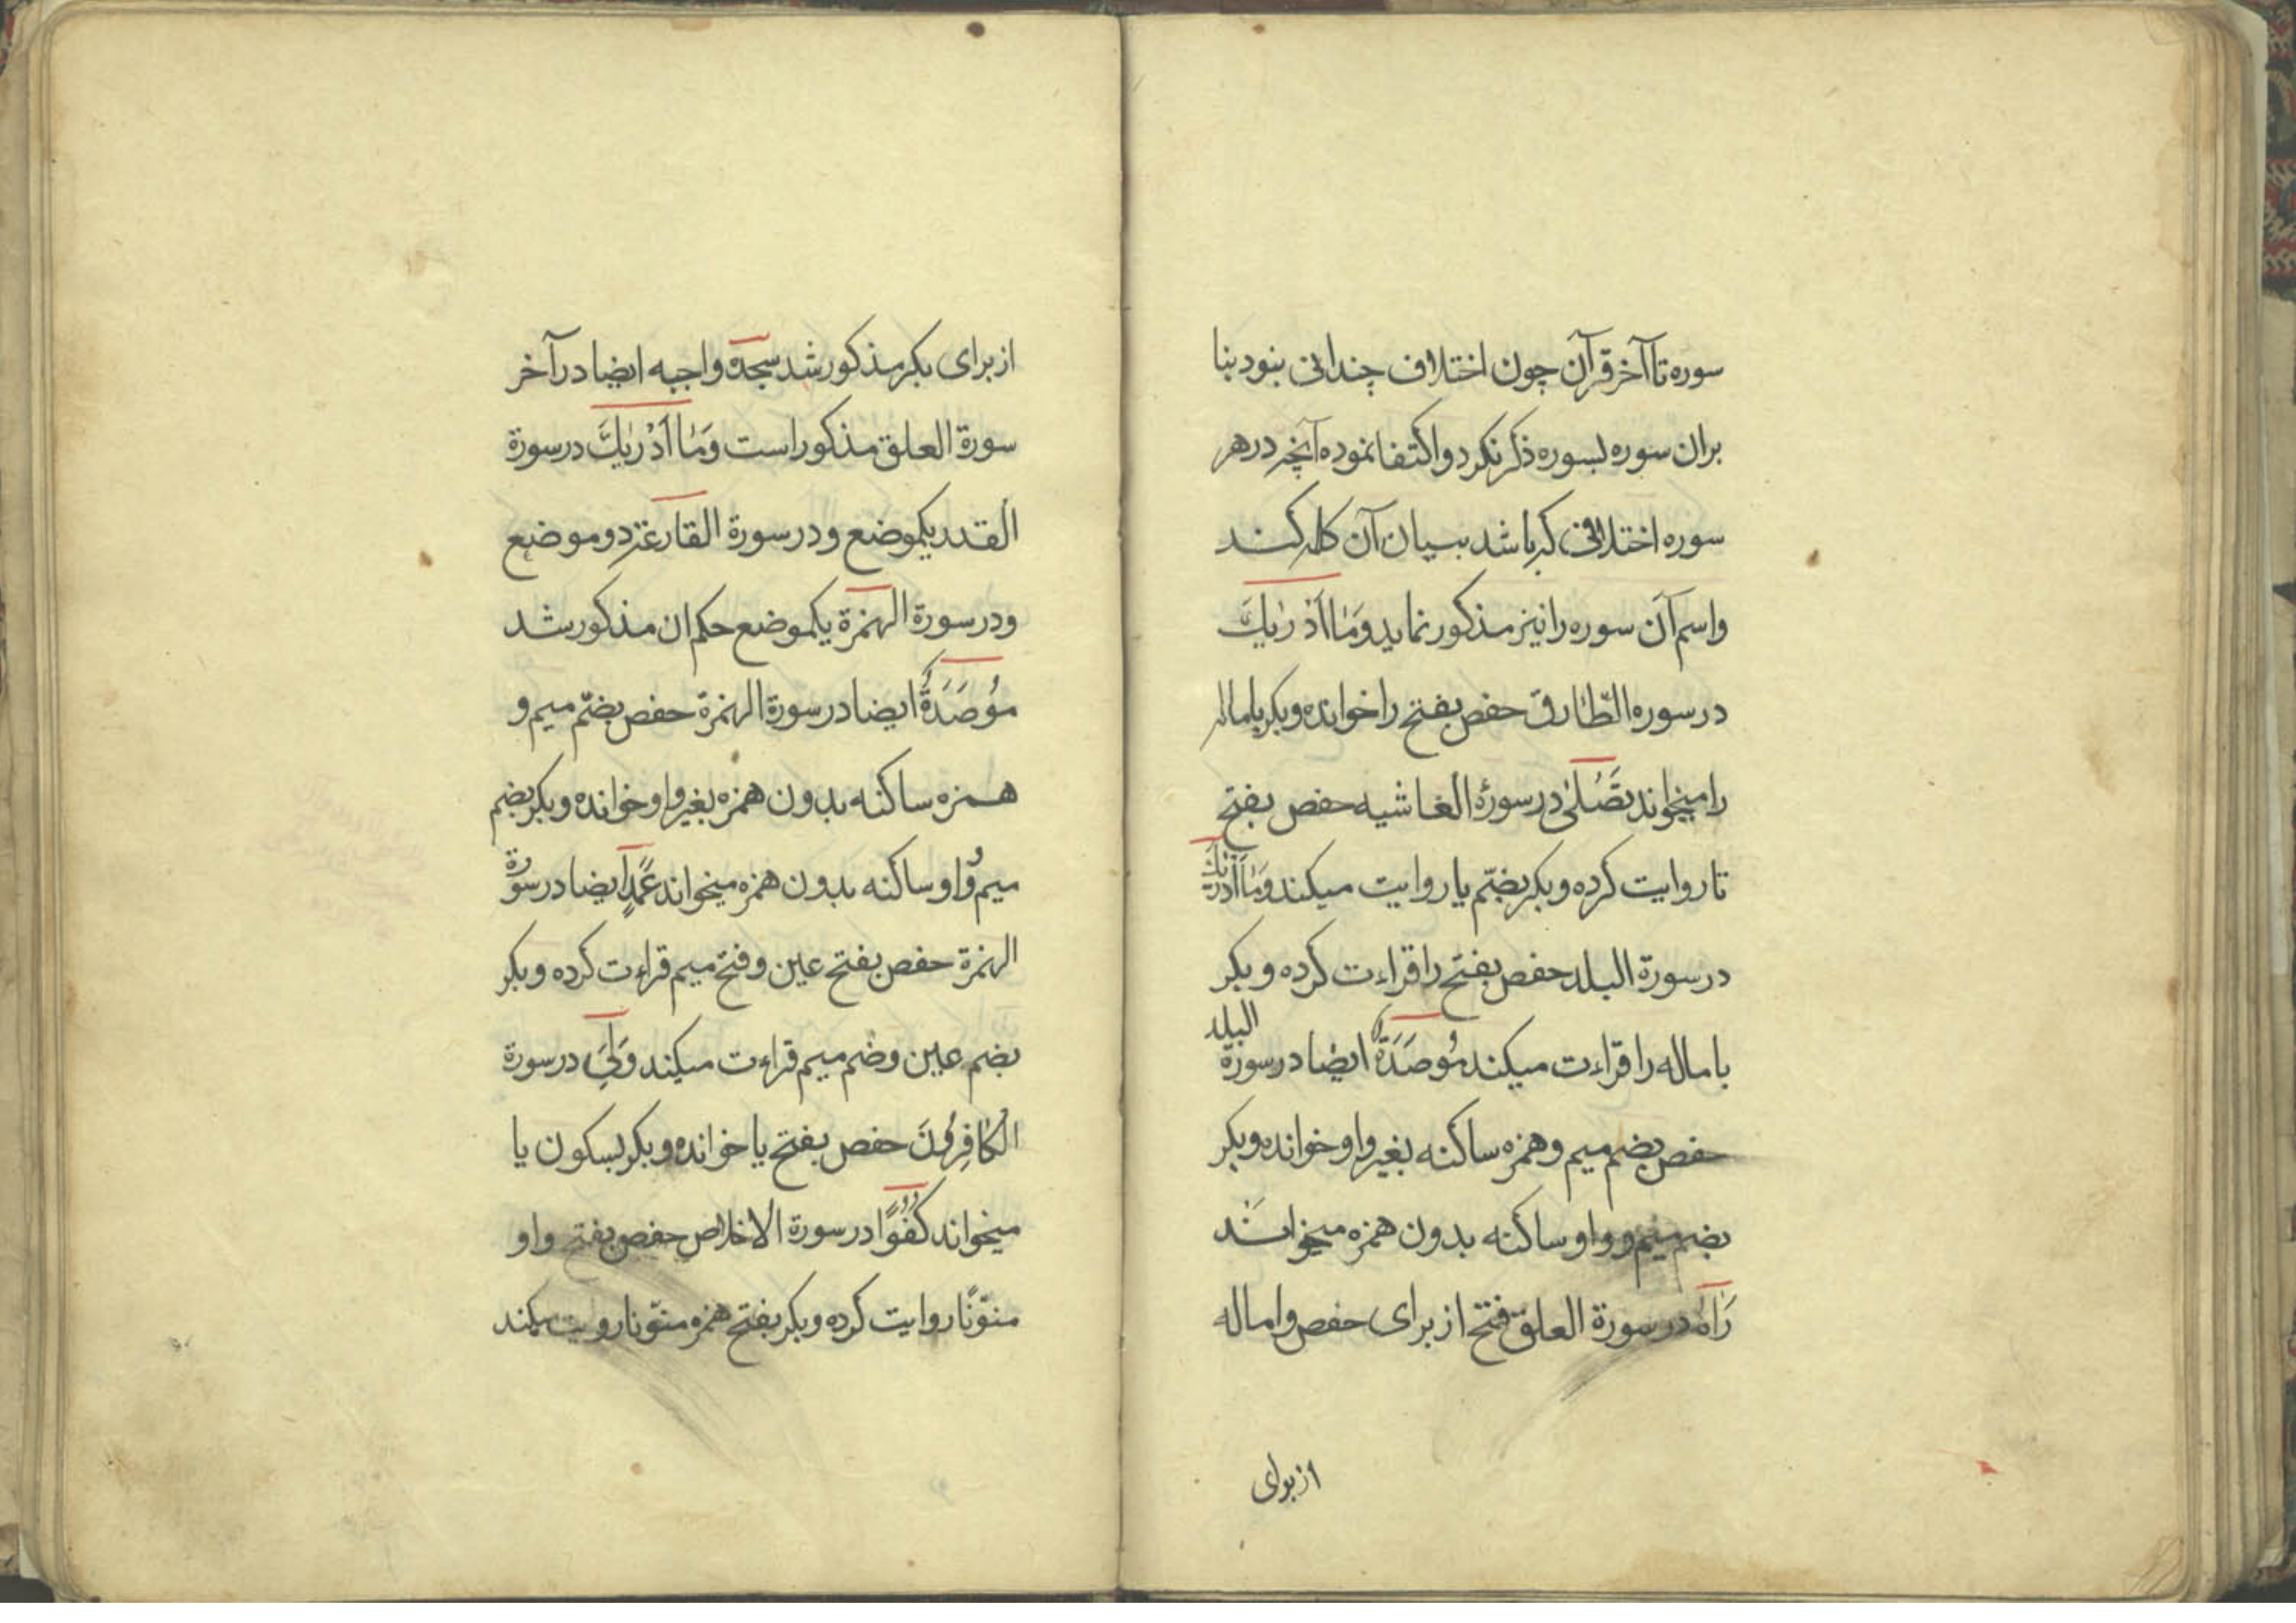 سوره تا آخر قرآن چون اختلاف چندانی بنود بنا
بران سوره بسوره ذکر نکرد و اکتفا نموده آنچه در هر
سوره اختلافی که باشد ببیان آن کلمه کند
و اسم آن سوره را نیز مذکور نماید وَمَا اَدْرٰیكَ
در سوره الطّارق حفص بفتح را خوانده و بکر باماله
را میخواند تَصْلٰی در سورۀ الغاشیه حفص بفتح
تا روایت کرده و بکر بضتم یا روایت میکند وَمَا اَدْرٰیكَ
در سورة البلد حفص بفتح را قراءت کرده و بکر
باماله را قراءت میکند مُوصَدَةٌ ایضا در سورة البلد
حفص بضم میم و همزه ساکنه بغیر واو خوانده و بکر
بضم میم و واو ساکنه بدون همزه میخواند
رَاٰهُ در سورة العلق فتح از برای حفص و اماله
از برای
از برای بکر مذکور شد سجده واجبه ایضا در آخر
سورة العلق مذکور است وَمَا اَدْرٰیكَ در سورة
القدر یکموضع و در سورة القارعة دو موضع
و در سورة الهمزة یکموضع حکم ان مذکور شد
مُوصَدَةٌ ایضا در سورة الهمزة حفص بضتم میم و
همزه ساکنه بدون همزه بغیر واو خوانده و بکر بضم
میم و واو ساکنه بدون همزه میخواند عَمَدٍ ایضا در سورة
الهمزة حفص بفتح عین و فتح میم قراءت کرده و بکر
بضم عین و ضم میم قراءت میکند وَلِیَ در سورة
الکٰافِرُونَ حفص بفتح یا خوانده و بکر بسکون یا
میخواند کُفُوًا در سورة الاخلاص حفص بفتح واو
منوّنًا روایت کرده و بکر بفتح همزه منوّنا روایت میکند